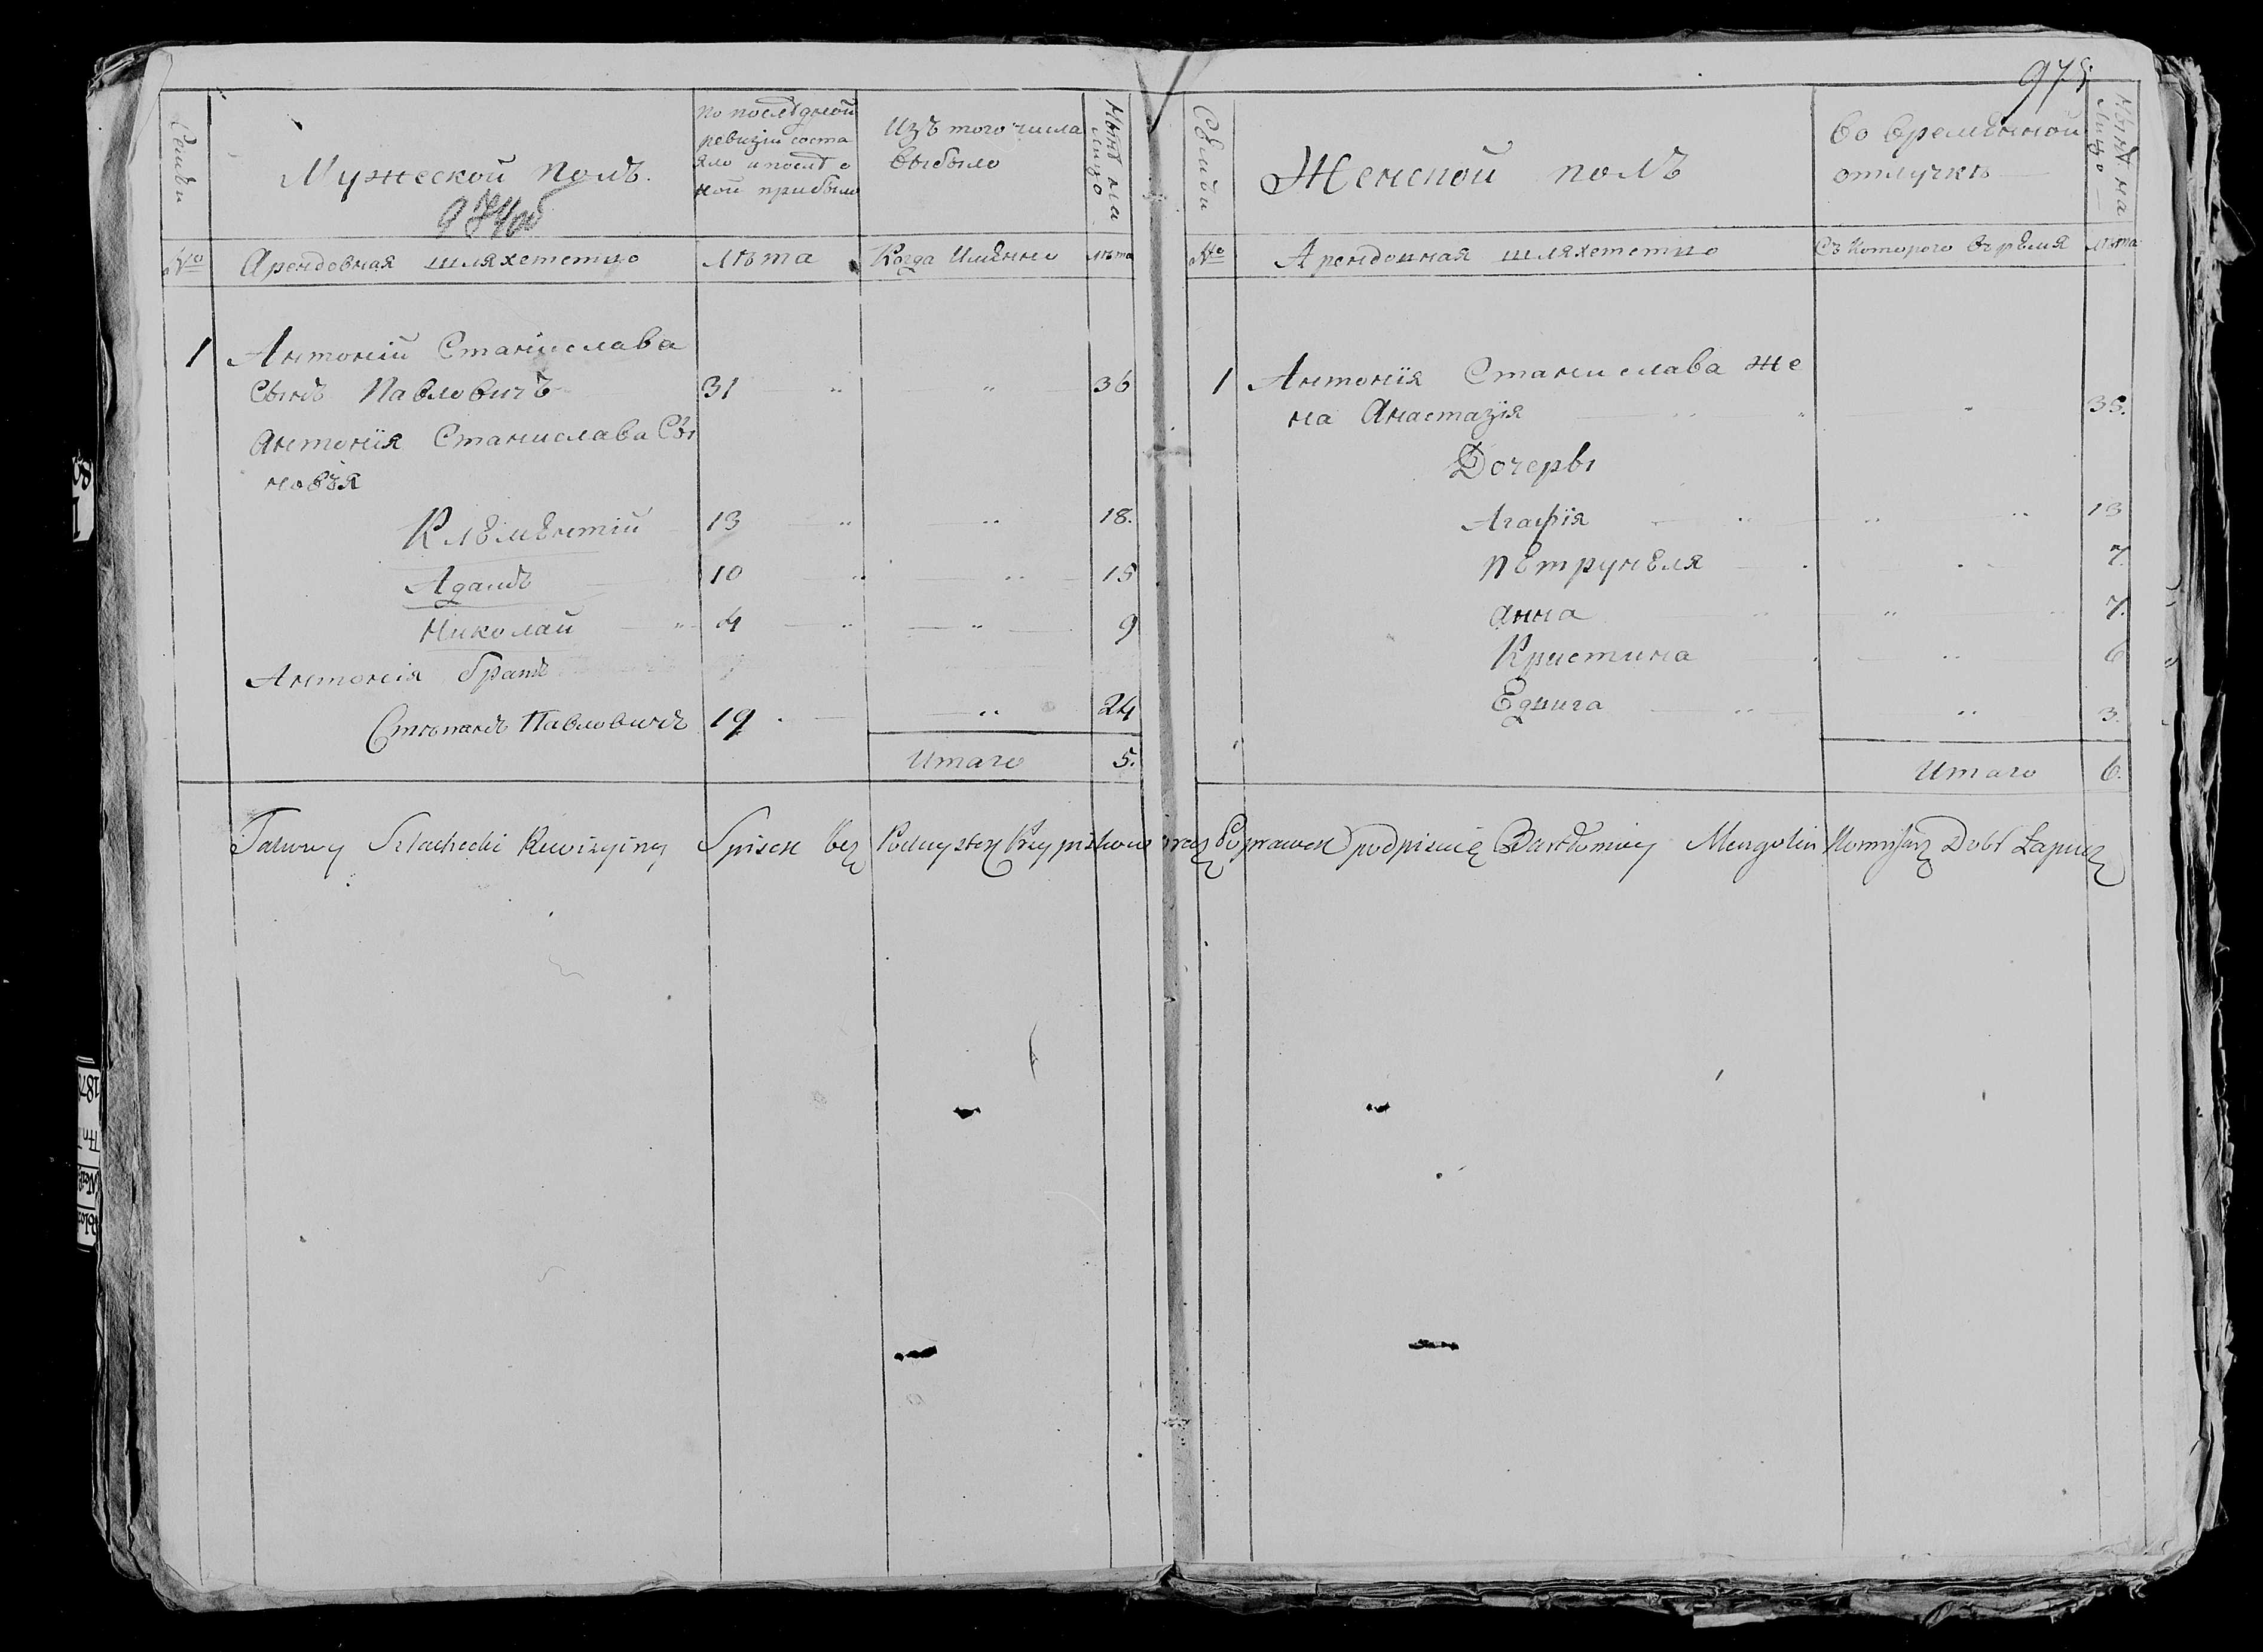 975
Семьи
Мужеской полъ.
По послѣдной
ревизіи соста
яло и послѣ о
ной прибыло
Изъ того числа
выбыло
Нынѣ на
лицо
№
Арендовная шляхететцо
Лѣта
Когда Имѣнно
Лѣта
1 Антоній Станіислава
Сынъ Павловичъ 31 36
Антонія Станислава Сы
новъя
Клементій 13 18.
Адамъ 10 15
Николай 4 9
Антонія братъ
Стѣпанъ Павловичъ 19 24
Итаго 5.
Семьи
Женской полъ
Во временной
отлучкѣ
Нынѣ на
Лицо
№
Арендонная шляхететцо
Съ Которого въремя
Лѣта
1 Антонія Станислава же
на Анастазія 35.
Дочеры
Агафія 13
Петрунеля 7.
Анна 7.
Кристина 6
Едвига 3.
Итаго 6.
Takowy Szlachecki Rewizyiny Spisek bez podpisuię Bartłomiey Komisarz Dobr